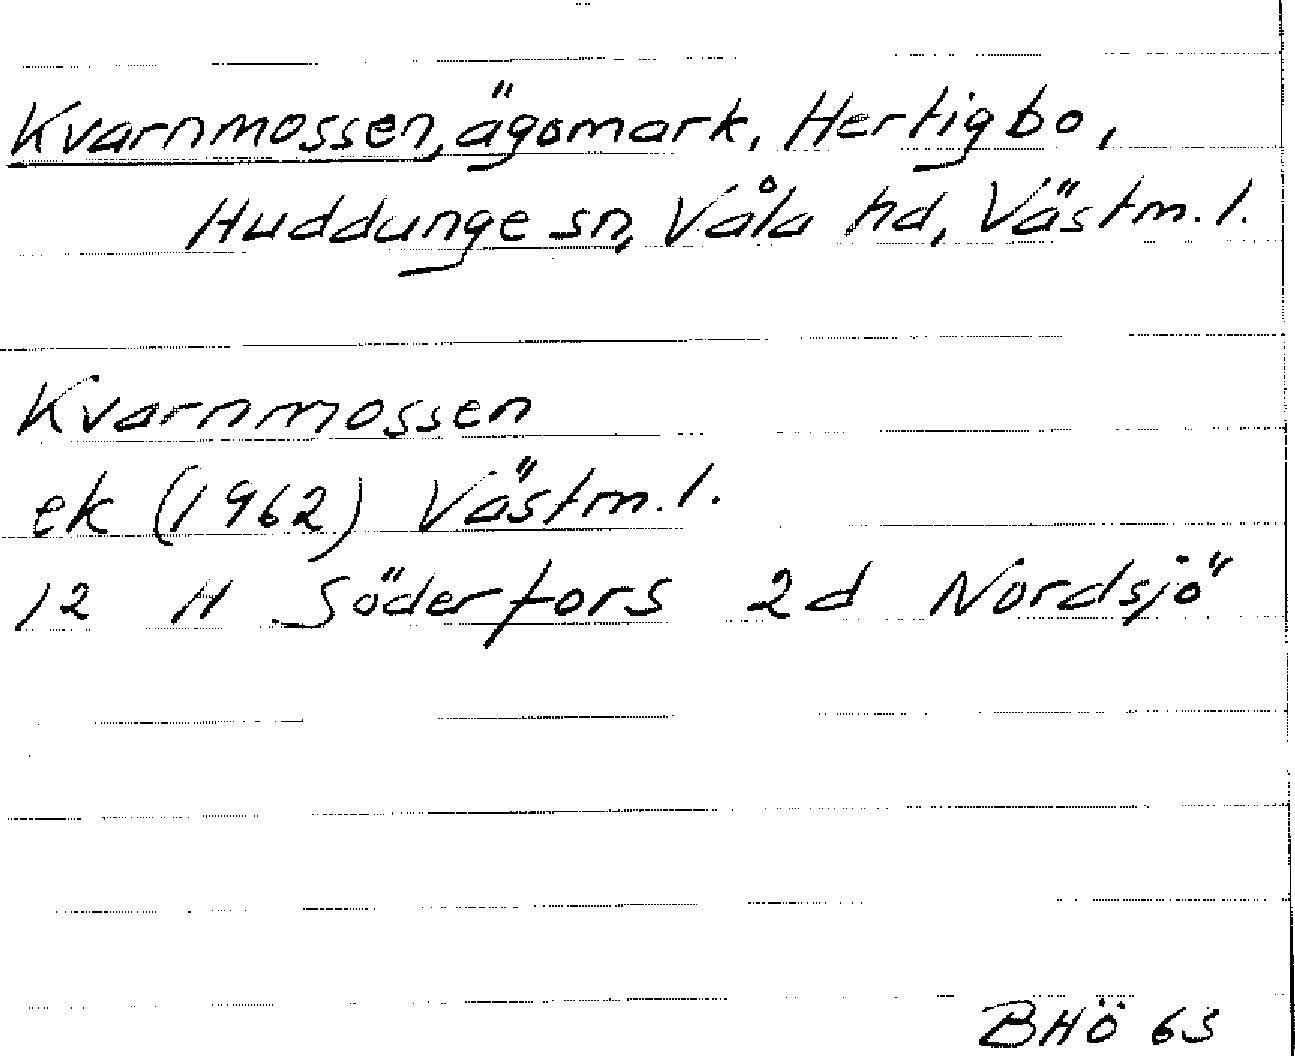 Kvarnmossen, ägomark, Hertigbo,
Huddunge sn, Våla hd, Västm. l.
Kvarnmossen
ek (1962) Västm. l.
12 H Söderfors 2d Nordsjö
BHÖ 65